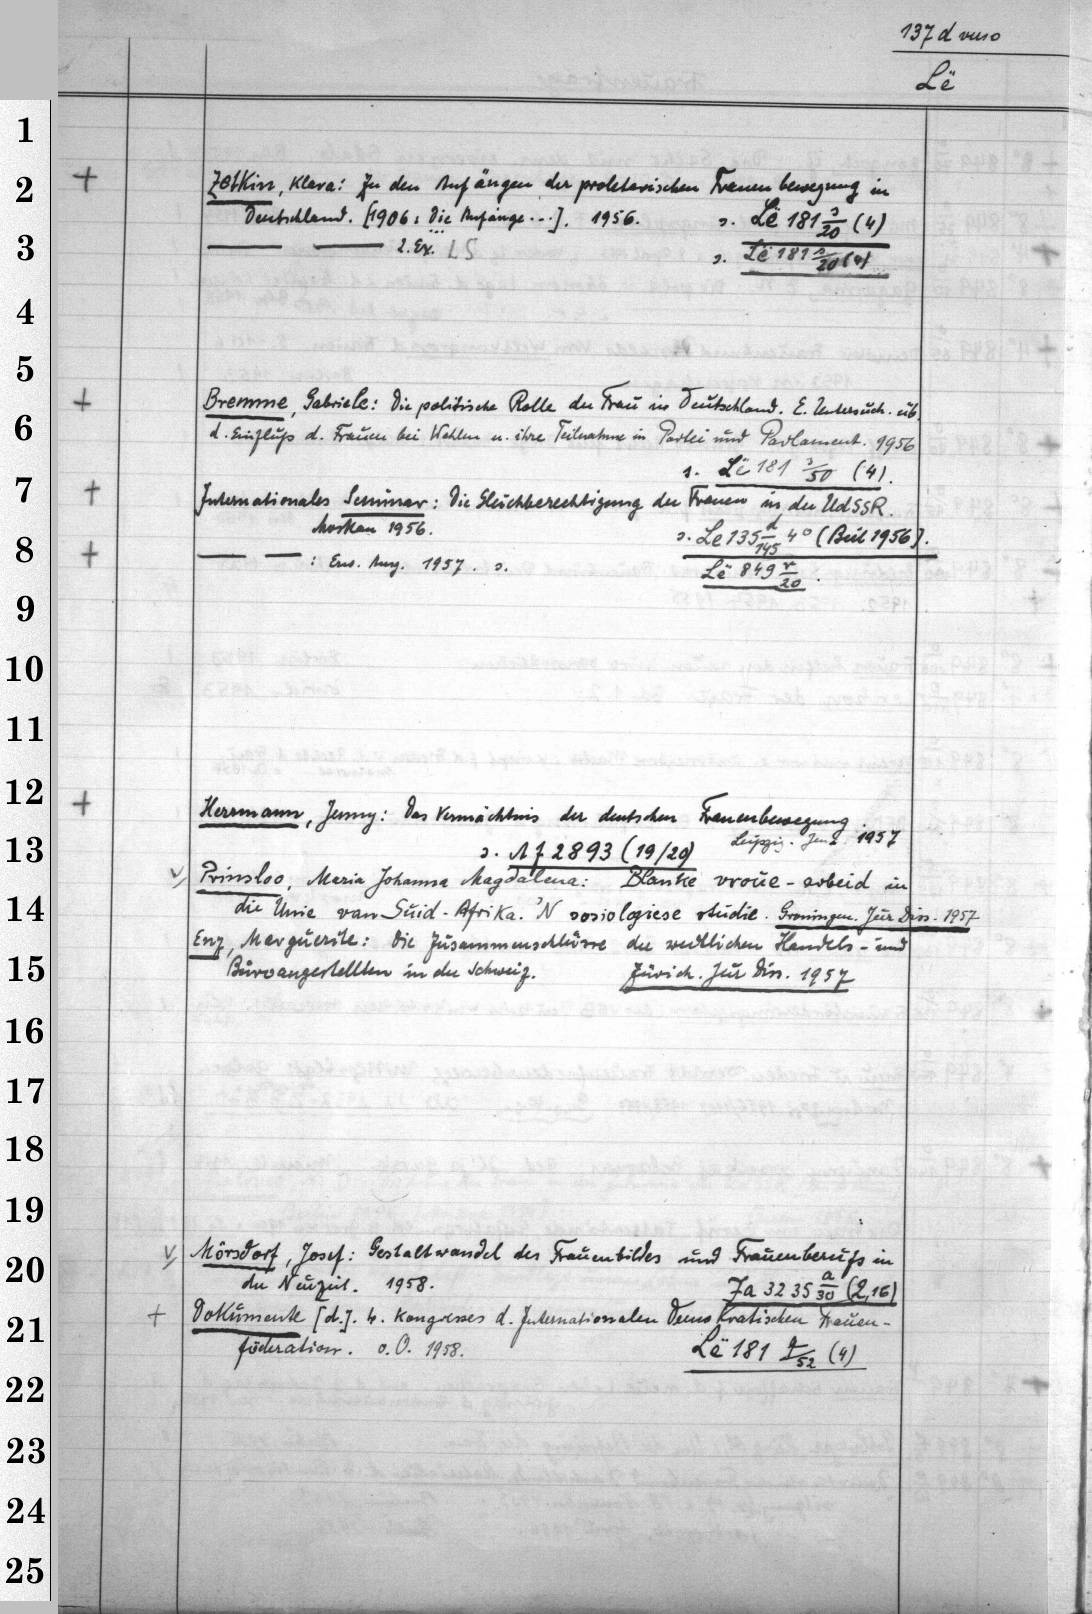 137 d verso
Lë
1
2
+ Zetkin, Klara: Zu den Anfängen der proletarischen Frauenbewegung in
Deutschland. [1906: Die Anfänge...]. 1956. s. Lë 181 s/20 (4)
3
— — 2. Ex. LS s. Lë 181 s/20 (4)
4
5
+ Bremme, Gabriele: Die politische Rolle der Frau in Deutschland. E. Untersuch. üb.
6
d. Einfluß d. Frauen bei Wahlen u. ihre Teilnahme in Partei und Parlament. 1956
s. Lë 181 s/50 (4).
7
+ Internationales Seminar: Die Gleichberechtigung der Frauen in der UdSSR.
Moskau 1956. s. Le 135 d/145 4° (Beil 1956).
8
+ — — : Erw. Ausg. 1957. s. Lë 849 r/20.
9
10
11
12
+ Herrmann, Jenny: Das Vermächtnis der deutschen Frauenbewegung.
Leipzig. 1957
13
s. Af 2893 (19/20)
v, Prinsloo, Maria Johanna Magdalena: Blanke vroue-arbeid in
14
die Unie van Suid-Afrika. 'N sosiologiese studie. Groningen. Jur Diss. 1957
Enz, Marguerite: Die Zusammenschlüsse der weiblichen Handels- und
15
Büroangestellten in der Schweiz. Zürich. Jur Diss. 1957
16
17
18
19
v, Mörsdorf, Josef: Gestaltwandel des Frauenbildes und Frauenberufs in
20
der Neuzeit. 1958. Ja 3235 a/30 (2,16)
+ Dokumente [d.]. 4. Kongresses d. Internationalen Demokratischen Frauen-
21
föderation. o.O. 1958. Lë 181 /52 (4)
22
23
24
25